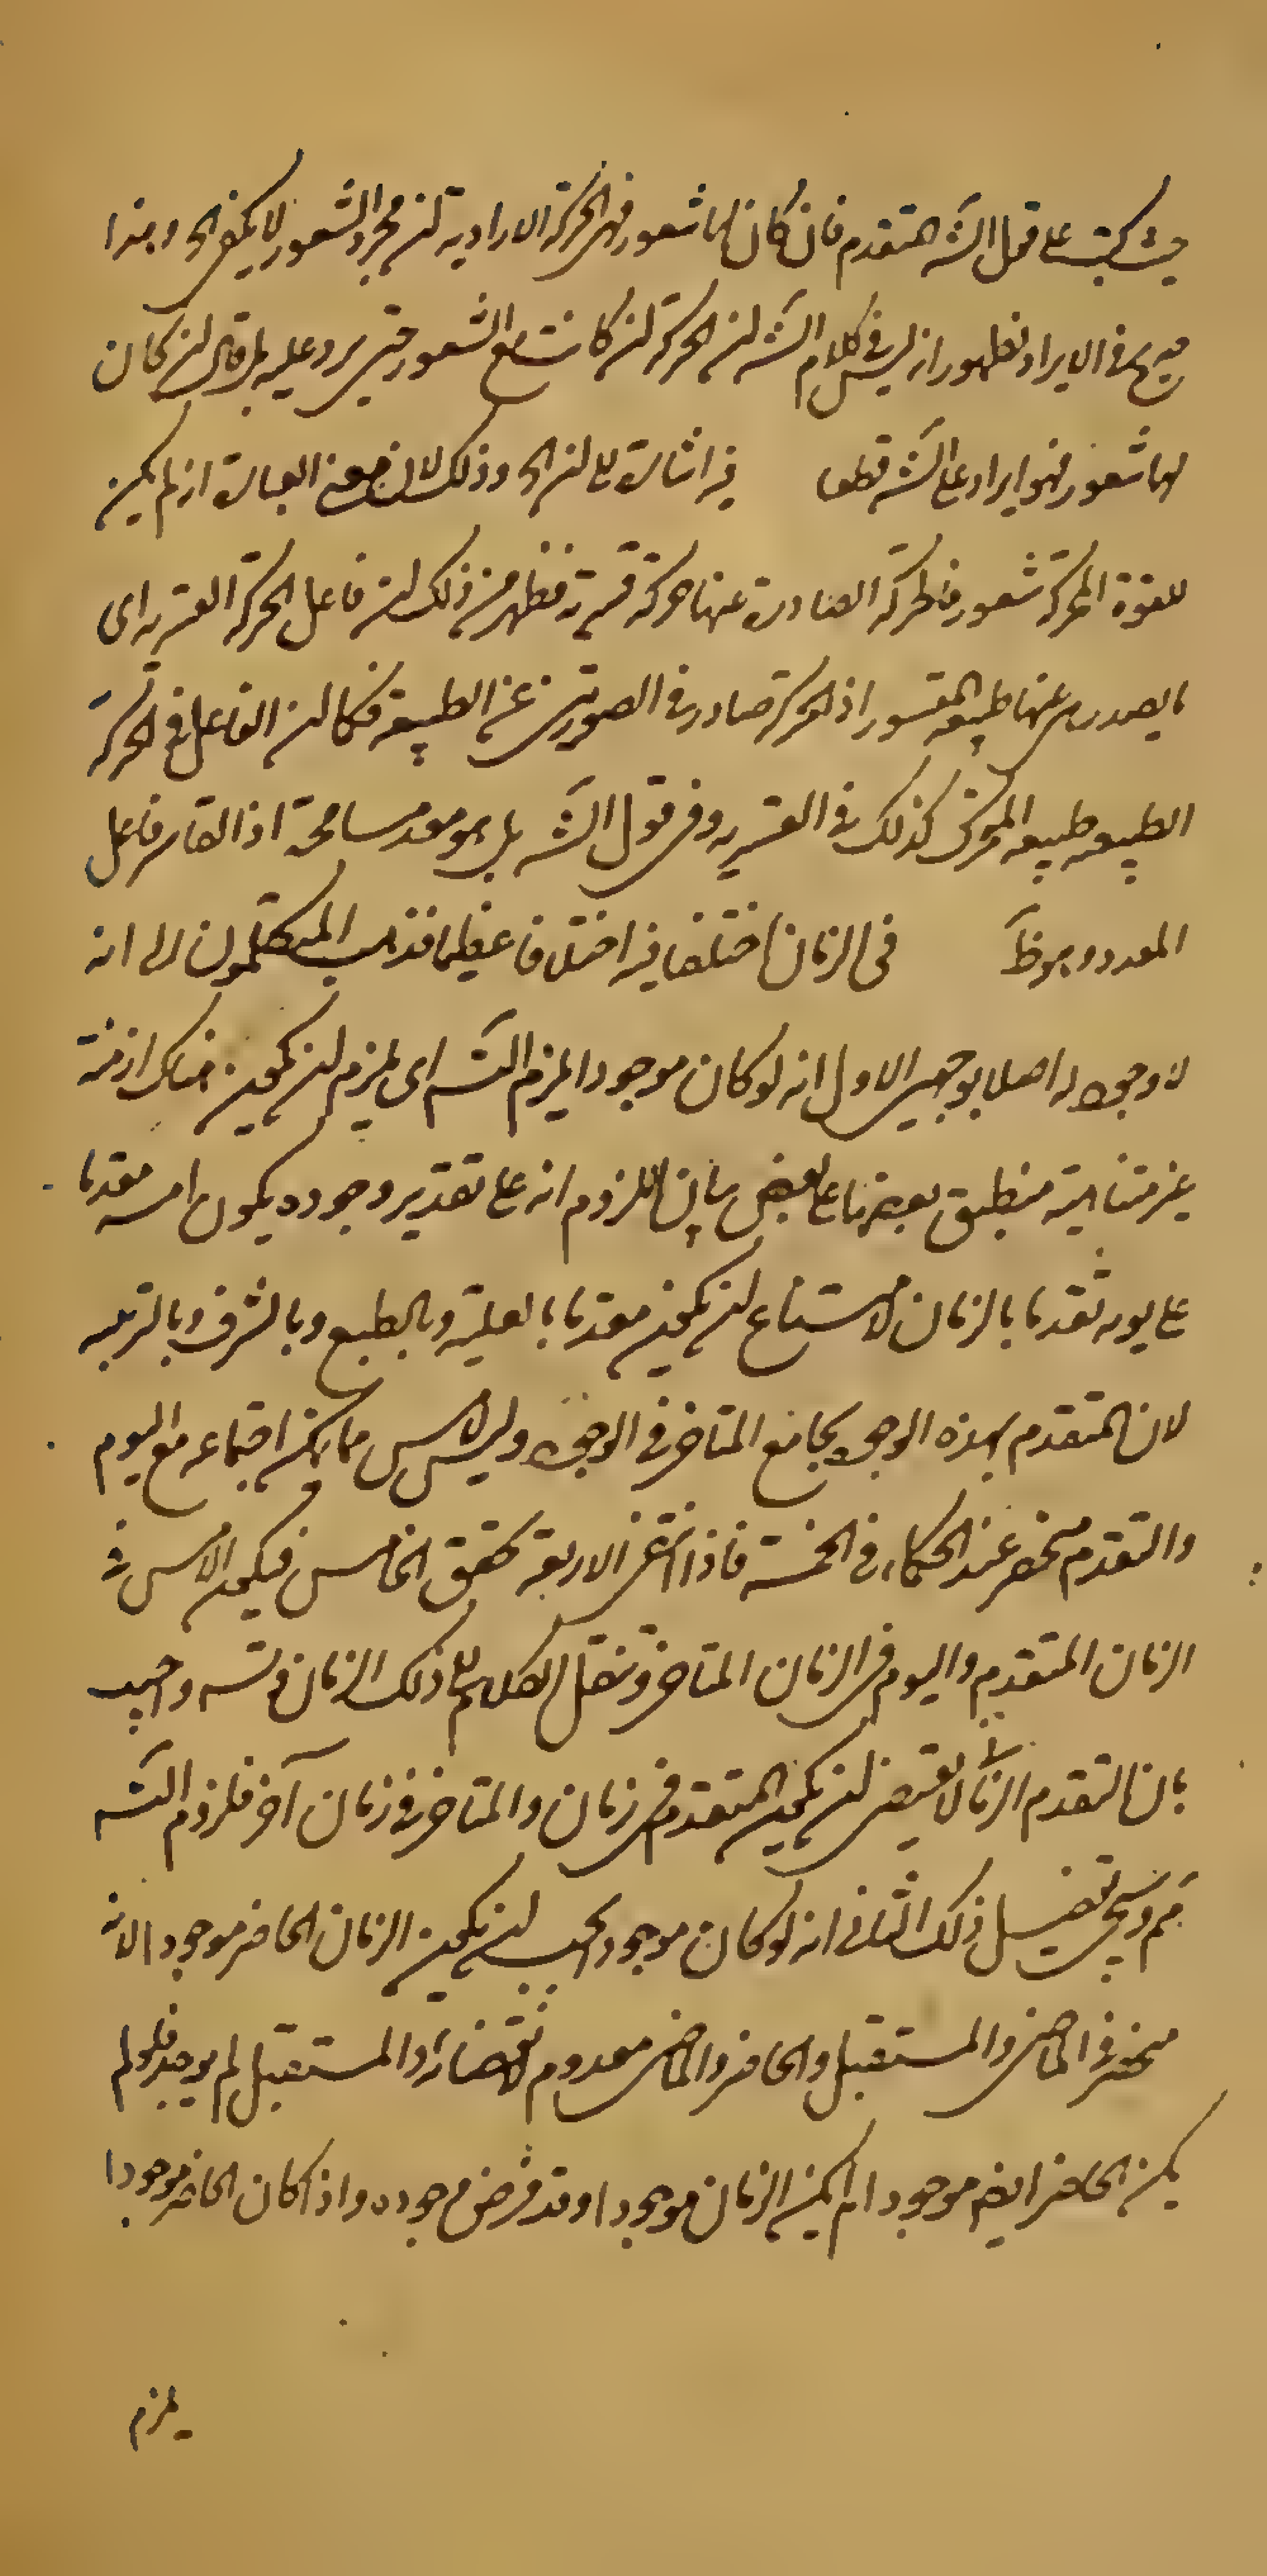 حيث كتب على قول الشه المتقدم فان كان لها شعور فهى الحركة الارادية لنر مجرد الشعور لا يكفى الخ وهذا
صريح فى الايراد لظهور انه ليس فى كلام الشه لنر الحركة لنر كانت مع الشعور حتى يرد عليه بل قال لنر كان
لها شعور فهو ايراد على الشه قطعا فيه اشارة الى لنر الخ وذلك لان معنى العبارة انه لم يكن
للقوة المحركة شعور فالحركة الصادرة عنها حركة قسرية فظهر من ذلك لنر فاعل الحركة القسرية اى
ما يصدر عنها طبيعة المقسور اذ الحركة صادرة فى الصورتين عن الطبيعة فكما لنر الفاعل فى الحركة
الطبيعية طبيعة المتحرك كذلك فى القسرية وفى قول الشه بل هو معد مسامحة اذ القاسر فاعل
المعد وهو ظ فى الزمان اختلفا فيه اختلافا عظيما فذهب المتكلمون الى انه
لا وجود له اصلا بوجهين الاول انه لو كان موجودا يلزم التسه اى يلزم لنر يكون هناك ازمنة
غير متناهية منطبق بعضها على بعض بيان اللزوم انه على تقدير وجوده يكون امسه مقدما
على يومه تقدما بالزمان لامتناع لنر يكون مقدما بالعلية وبالطبع وبالشرف وبالرتبه
لان المتقدم بهذه الوجوه يجامع المتاخر فى الوجود وليس الامس مما يمكن اجتماعه مع اليوم
والتقدم منحصر عند الحكماء فى الخمسة فاذا انتفى الاربعة تحقق الخامس فيكون الامس فى
الزمان المتقدم واليوم فى الزمان المتاخر وننقل الكلام الى ذلك الزمان فتسه واجيب
بان التقدم الزمانى لا يقتضى لنر يكون المتقدم فى زمان والمتاخر فى زمان آخر فلزوم التسه
مم وسيجئ تفصيل ذلك الثانى انه لو كان موجودا يجب لنر يكون الزمان الحاضر موجودا لانه
منحصر فى الماضى والمستقبل والحاضر والماضى معدوم لانقضائه والمستقبل لم يوجد فلو لم
يكن الحاضر ايضم موجودا لم يكن الزمان موجودا وقد فرض وجوده واذا كان الحاضر موجودا
يلزم